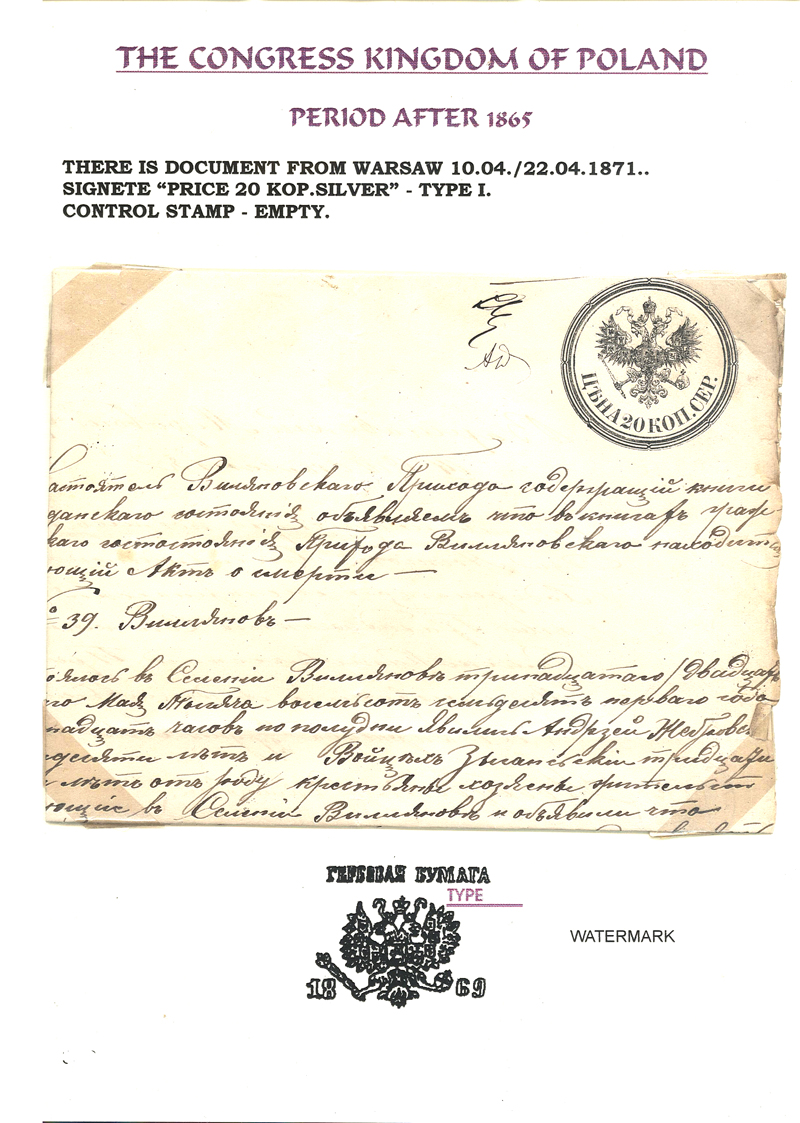 THE CONGRESS KINGDOM OF POLAND
PERIOD AFTER 1865
THERE IS DOCUMENT FROM WARSAW 10.04./22.04.1871..
SIGNETE “PRICE 20 KOP.SILVER” - TYPE I.
CONTROL STAMP - EMPTY.
ЦѢНА 20 КОП. СЕР.
астоятель Вилляновскаго Прихода содержащій книги
данскаго состоянія объявляемъ что въ книгахъ граж
скаго состоянія Прихода Вилляновскаго находится
ющій Актъ о смерти —
№ 39. Вилляновъ —
оялось въ Селеніи Вилляновѣ тринадцатаго / двадцать
го Мая Тысяча восемьсотъ семьдесятъ перваго года
надцать часовъ по полудни явились Андрей Жебровс
десяти лѣтъ и Войцѣхъ тридцати
лѣтъ отъ роду крестьяне хозяева жительст
ющіе въ Селеніи Вилляновѣ и объявили что
ГЕРБОВАЯ БУМАГА
TYPE
18 69
WATERMARK